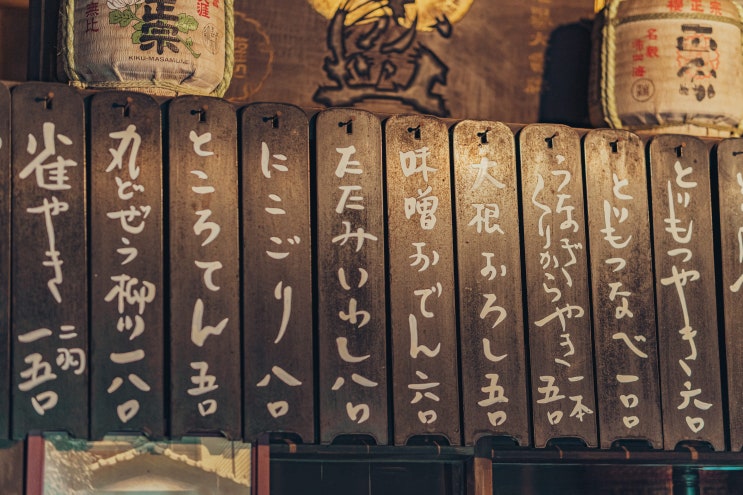 正宗
KIKU-MASAMUNE
とりもつやき 六〇
とりもつなべ 一〇〇
うなぎくりからやき 一本 五〇
大根おろし 五〇
味噌おでん 六〇
たたみいわし 八〇
にこごり 八〇
ところてん 五〇
丸どぜう柳川 一八〇
雀やき 二羽 一五〇